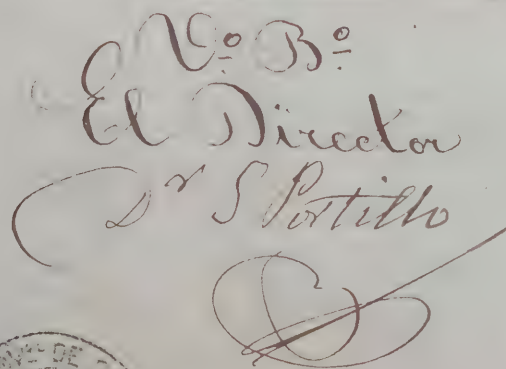 Vº Bº
El Director
Dr S Portillo
DE